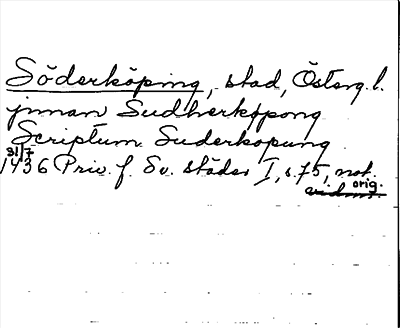 Söderköping, stad, Österg. l.
jnnan Sudherköpong
Scriptum Suderkopung
31/7
1436 Priv. f. Sv. städer I, s. 75, not.
orig.
vidim.